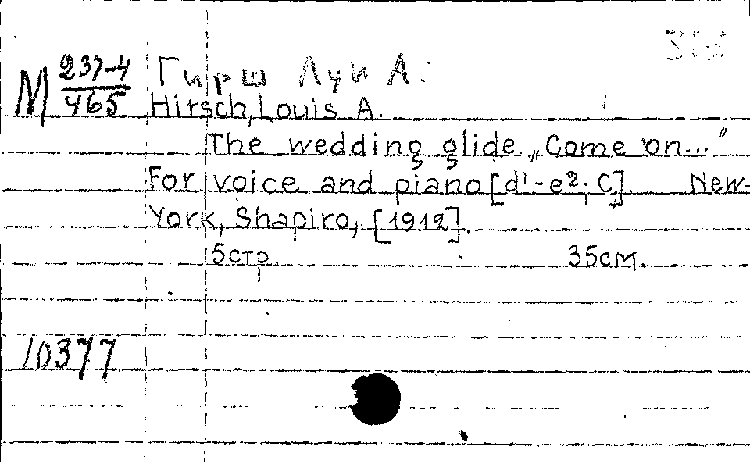 М 237-4/465 Гирш Луи А.
Hirsch, Louis A.
The wedding glide „Come on..."
For voice and piano [d¹-e²; C] New-
York, Shapiro, [1912].
5стр. 35см.
10377